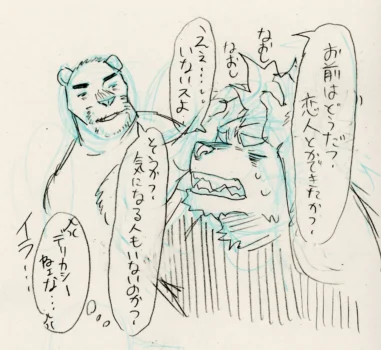 お前はどうだ?
恋人とかできたか?
なおし
なおし
えぇ…
いないスよ
そうか?
気になる人もいないのか?
デリカシー
ねェな…
イラ…